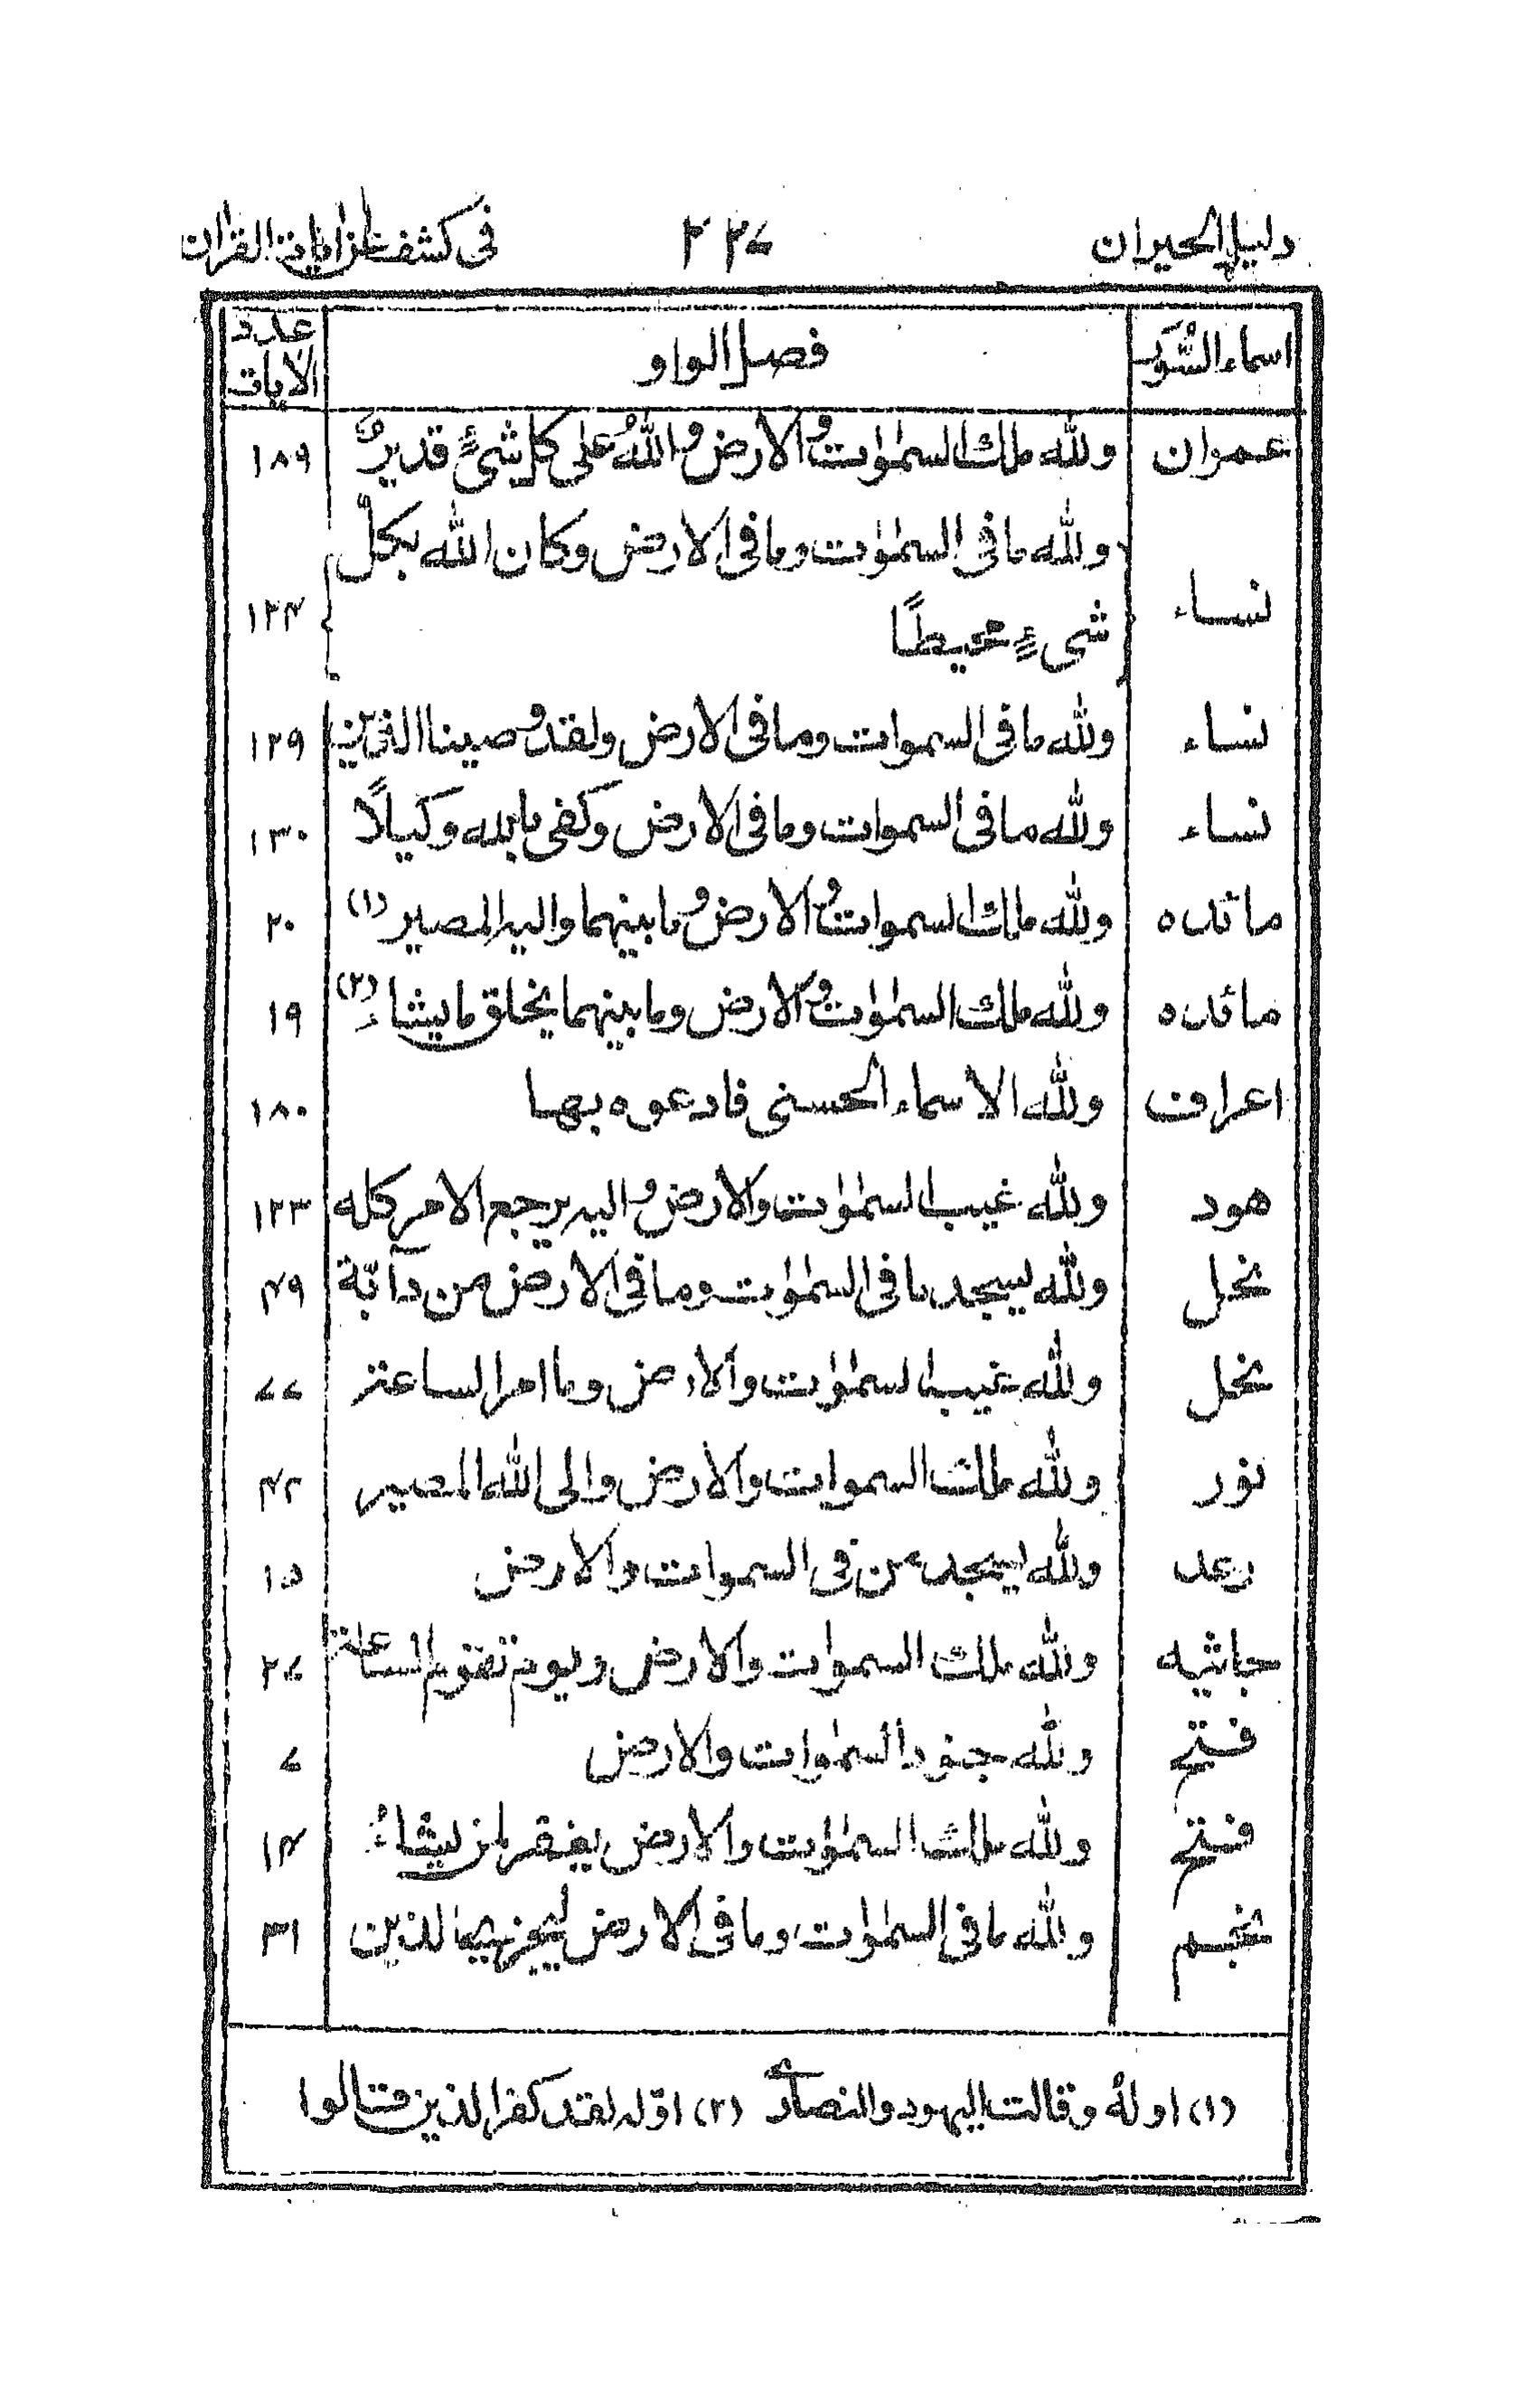 دليل الحيران ٣٢٧ فى كشف عن ايات القران
اسماء السُّوَر فصل الواو عدد الايات
عمران ولله ملك السمٰوٰت والارض واللهُ على كل شىءٍ قديرٌ ١٨٩
ولله ما فى السمٰوٰت وما فى الارض وكان الله بكل
نساء ١٢٤
شىءٍ محيطًا
نساء ولله ما فى السموات وما فى الارض ولقد وصينا الذين ١٢٩
نساء ولله ما فى السموات وما فى الارض وكفى بالله وكيلًا ١٣٠
مائده ولله ملك السموات والارض وما بينهما واليه المصير (١) ٢٠
مائده ولله ملك السمٰوٰت والارض وما بينهما يخلق ما يشاء (٢) ١٩
اعراف ولله الاسماء الحسنى فادعوه بها ١٨٠
هود ولله غيب السمٰوٰت والارض واليه يرجع الامر كله ١٢٣
نحل ولله يسجد ما فى السمٰوٰت وما فى الارض من دآبّة ٤٩
نحل ولله غيب السمٰوٰت والارض وما امر الساعة ٧٧
نور ولله ملك السموات والارض والى الله المصير ٤٢
رعد ولله يسجد من فى السموات والارض ١٥
جاثيه ولله ملك السموات والارض ويوم تقوم الساعة ٢٧
فتح ولله جنود السمٰوات والارض ٧
فتح ولله ملك السمٰوٰت والارض يغفر لمن يشاءُ ١٤
نجم ولله ما فى السمٰوٰت وما فى الارض ليجزى الذين ٣١
(١) اوله وقالت اليهود والنصارٰى (٢) اوّله لقد كفر الذين قالوا